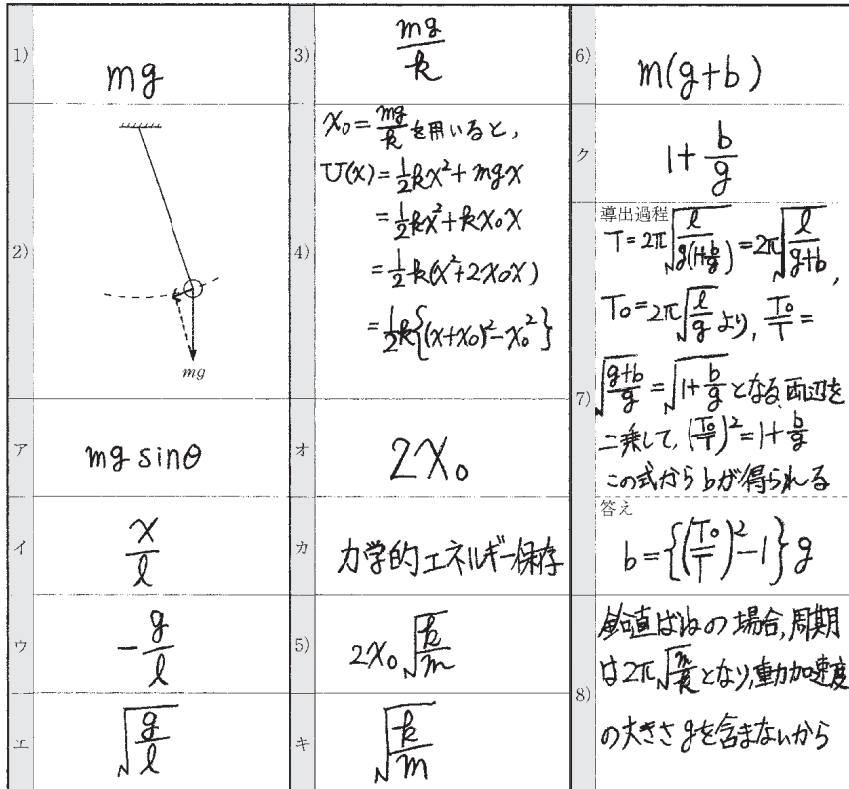 1)
mg
2)
mg
ア
mg sinθ
イ
x/l
ウ
-g/l
エ
√(g/l)
3)
mg/k
4)
x₀=mg/kを用いると,
U(x)=1/2kx²+mgx
=1/2kx²+kx₀x
=1/2k(x²+2x₀x)
=1/2k{(x+x₀)²-x₀²}
オ
2x₀
カ
力学的エネルギー保存
5)
2x₀√(k/m)
キ
√(k/m)
6)
m(g+b)
ク
1+b/g
7)
導出過程
T=2π√(l/(g(1+b/g)))=2π√(l/(g+b)),
T₀=2π√(l/g)より, T₀/T=
√((g+b)/g)=√(1+b/g)となる,両辺を
二乗して, (T₀/T)²=1+b/g
この式からbが得られる
答え
b={(T₀/T)²-1}g
8)
鉛直ばねの場合,周期
は2π√(m/k)となり,重力加速度
の大きさgを含まないから